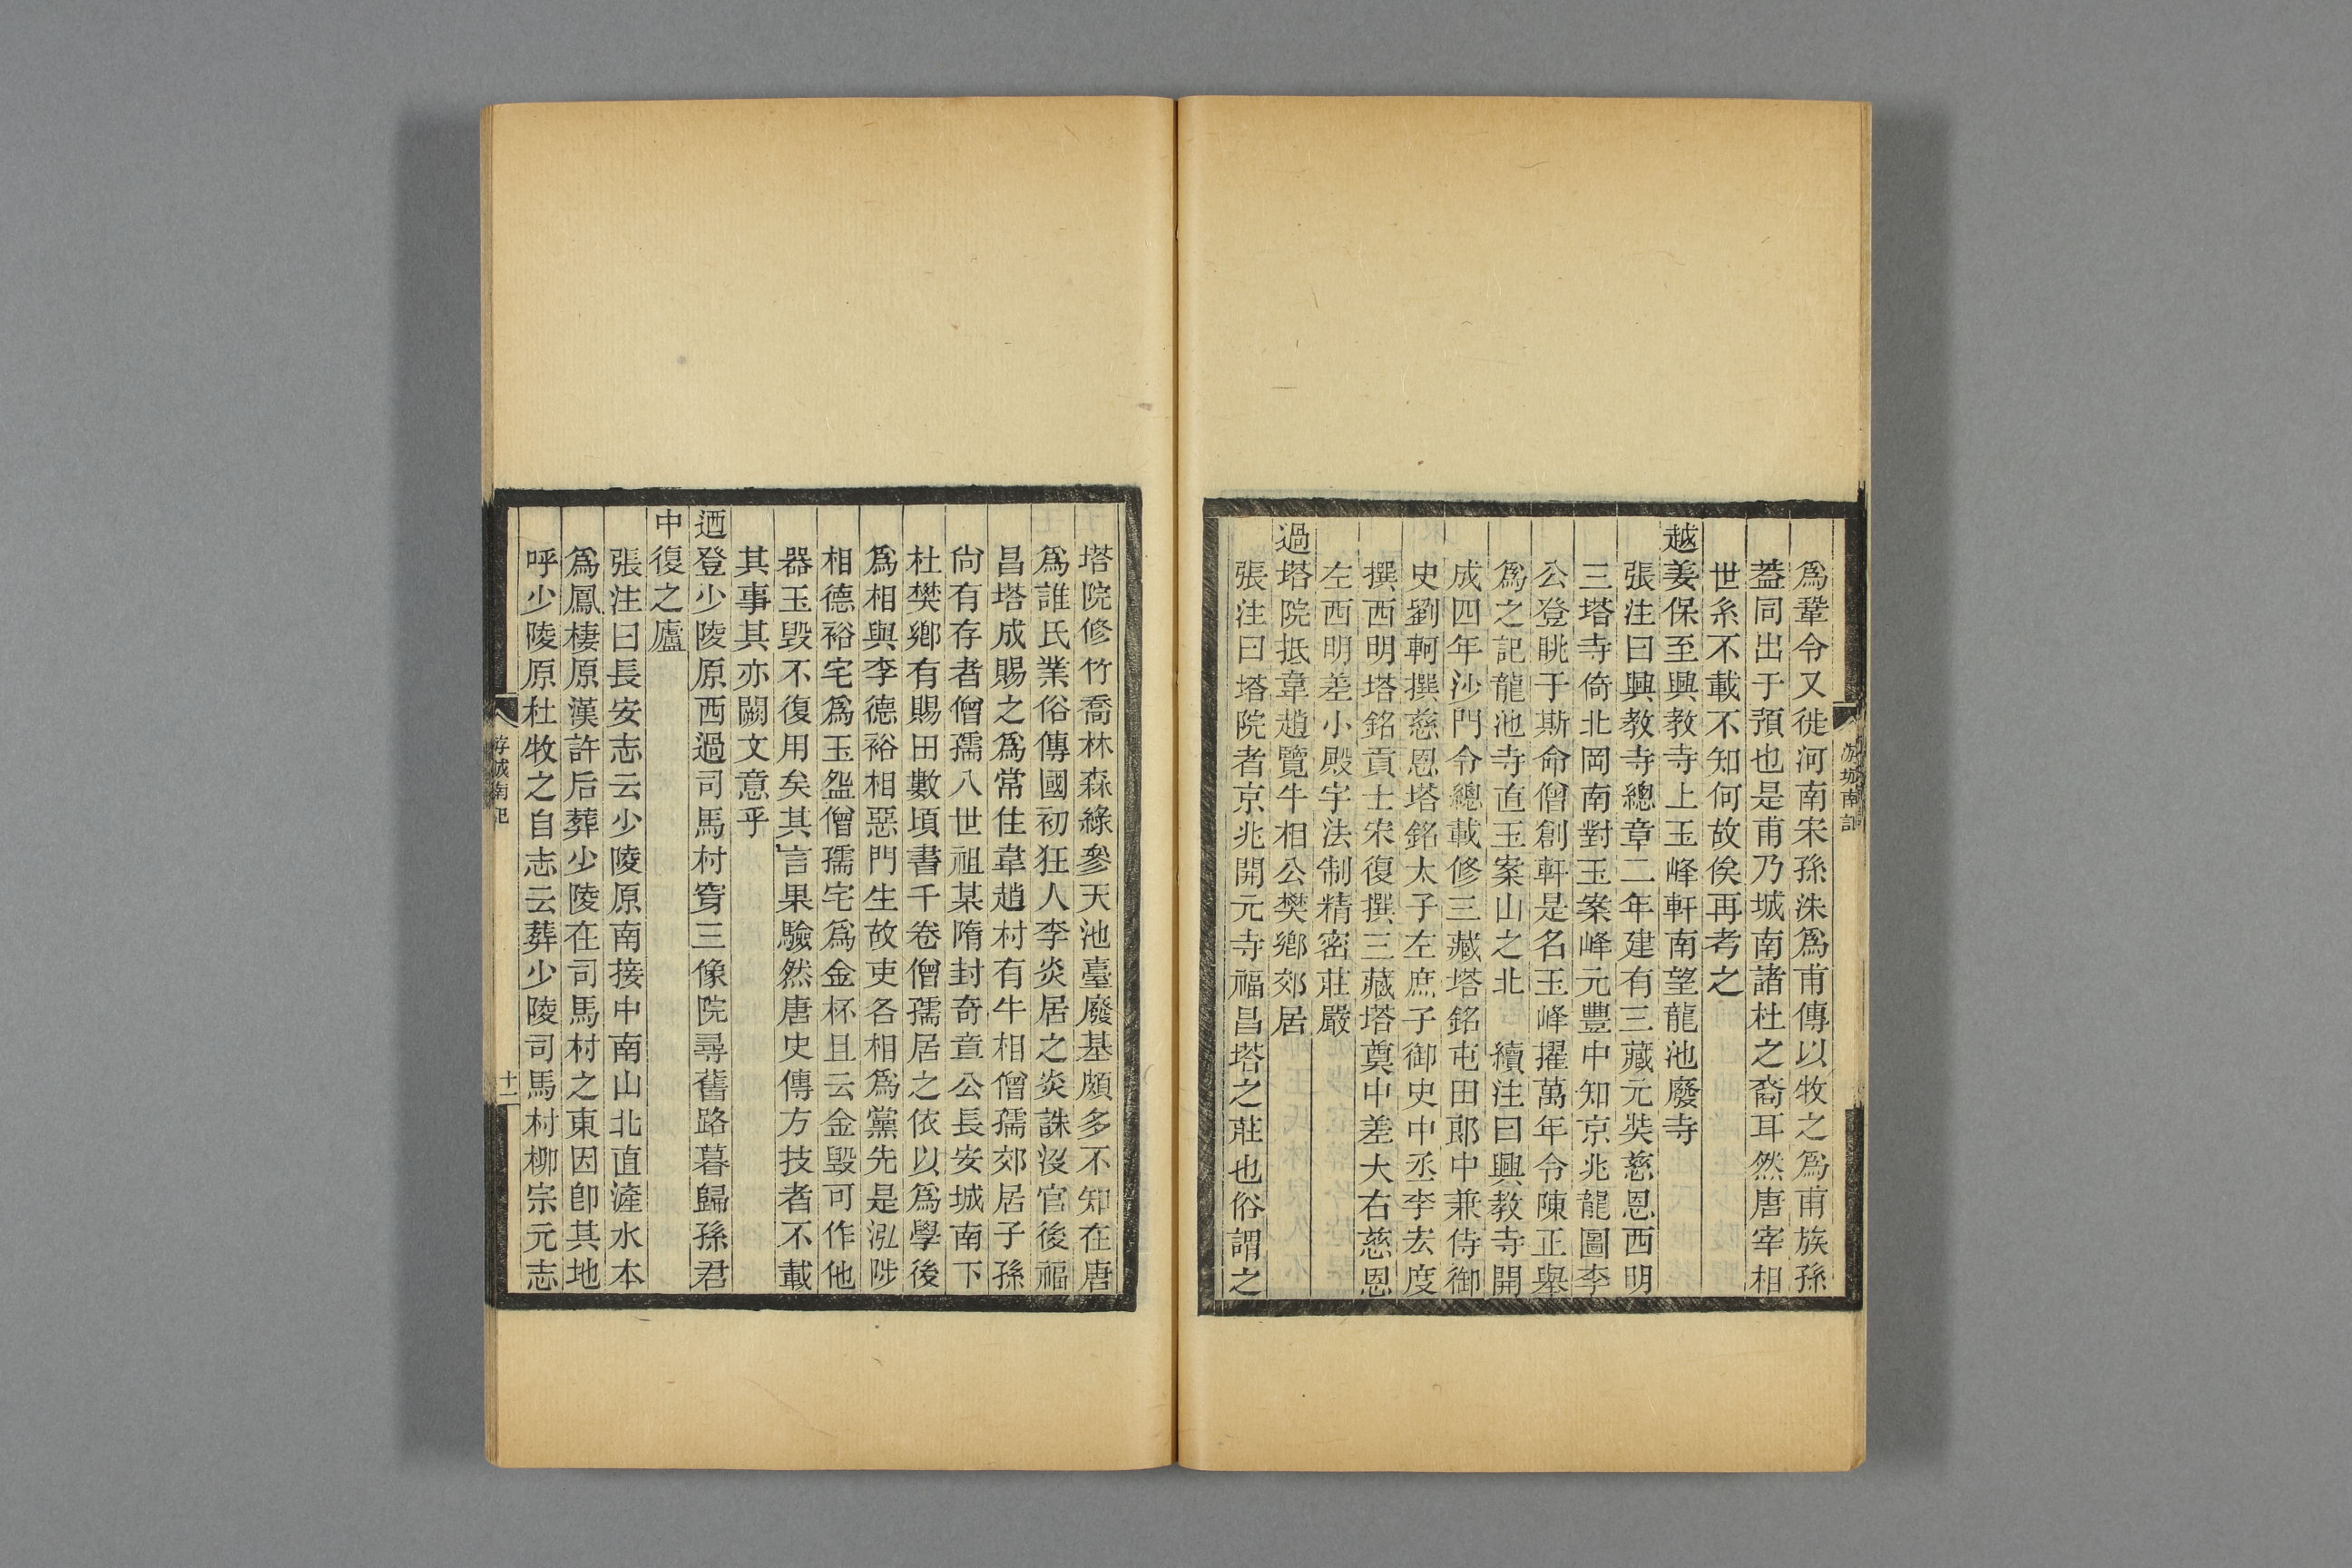 爲鞏令又徙河南宋孫洙爲甫傳以牧之爲甫族孫
葢同出于預也是甫乃城南諸杜之裔耳然唐宰相
世系不載不知何故俟再考之
越姜保至興教寺上玉峰軒南望龍池廢寺
張注曰興教寺總章二年建有三藏元奘慈恩西明
三塔寺倚北岡南對玉案峰元豐中知京兆龍圖李
公登眺于斯命僧創軒是名玉峰擢萬年令陳正舉
爲之記龍池寺直玉案山之北　續注曰興教寺開
成四年沙門令總載修三藏塔銘屯田郎中兼侍御
史劉軻撰慈恩塔銘太子左庶子御史中丞李宏度
撰西明塔銘貢士宋復撰三藏塔奠中差大右慈恩
左西明差小殿宇法制精密莊嚴
過塔院抵韋趙覽牛相公樊鄉郊居
張注曰塔院者京兆開元寺福昌塔之莊也俗謂之
游城南記
塔院修竹喬林森綠參天池臺廢基頗多不知在唐
爲誰氏業俗傳國初狂人李炎居之炎誅沒官後福
昌塔成賜之爲常住韋趙村有牛相僧孺郊居子孫
尙有存者僧孺八世祖某隋封奇章公長安城南下
杜樊鄉有賜田數頃書千卷僧孺居之依以爲學後
爲相與李德裕相惡門生故吏各相爲黨先是泓陟
相德裕宅爲玉盌僧孺宅爲金杯且云金毀可作他
器玉毀不復用矣其言果驗然唐史傳方技者不載
其事其亦闕文意乎
迺登少陵原西過司馬村穿三像院尋舊路暮歸孫君
中復之廬
張注曰長安志云少陵原南接中南山北直滻水本
爲鳳棲原漢許后葬少陵在司馬村之東因卽其地
呼少陵原杜牧之自志云葬少陵司馬村柳宗元志
游城南記
十一